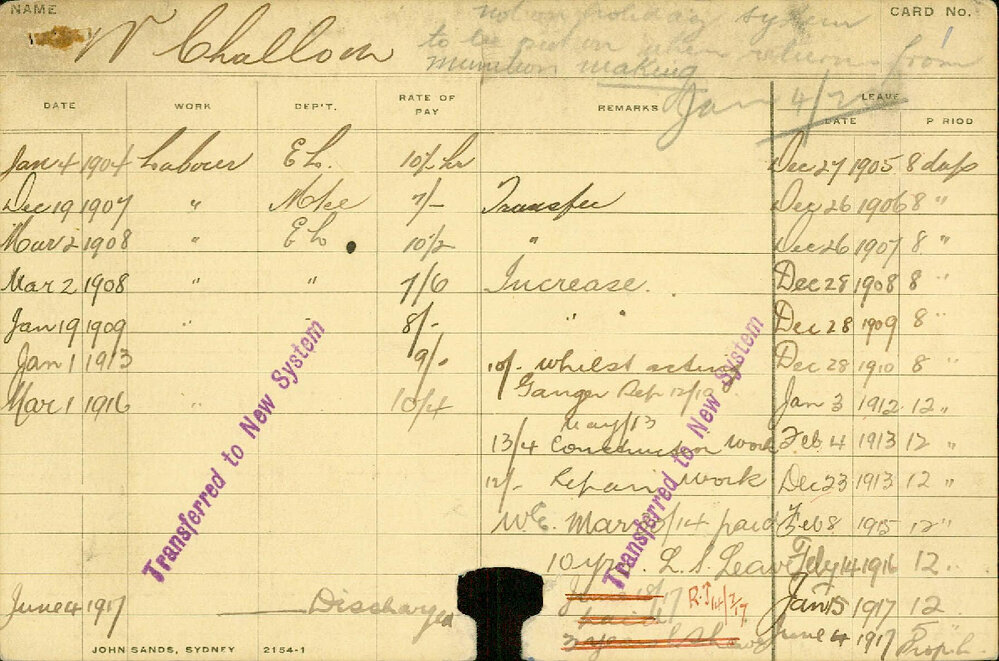 NAME
W Challom
not on holiday system
to be put on when returns from
munition making
Jan 4/2
CARD No.
DATE WORK DEP'T. RATE OF PAY REMARKS LEAVE
DATE PERIOD
Jan 4 1904 Labourer E L. 10½ hr Dec 27 1905 8 days
Dec 19 1907 " Mtce 7/- Transfer Dec 26 1906 8 "
Mar 2 1908 " E L 10½ " Dec 26 1907 8 "
Mar 2 1908 " " 7/6 Increase. Dec 28 1908 8 "
Jan 19 1909 " 8/- " " Dec 28 1909 8 "
Jan 1 1913 9/- 10/- whilst acting Dec 28 1910 8 "
Mar 1 1916 " 10/4 Ganger Jan 3 1912 12 "
May/13
13/4 Construction work Feb 4 1913 12 "
12/- Repair work Dec 23 1913 12 "
W.E. Mar /14 paid Feb 8 1915 12 "
10 yrs. L. S. Leave Feby 14 1916 12 "
June 4 1917 Discharged R.J 14/2/17 Jan 15 1917 12
paid June 4 1917
Transferred to New System
Transferred to New System
JOHN SANDS, SYDNEY 2154-1